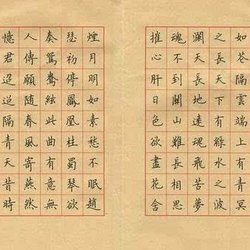 如花隔雲端上有青冥
之長天下有淥水之波
瀾天長地遠魂飛苦夢
魂不到關山難長相思
摧心肝日色欲盡花含
煙月明如素愁不眠趙
瑟初停鳳凰柱蜀琴欲
奏鴛鴦絃此曲有意無
人傳願隨春風寄燕然
憶君迢迢隔青天昔時